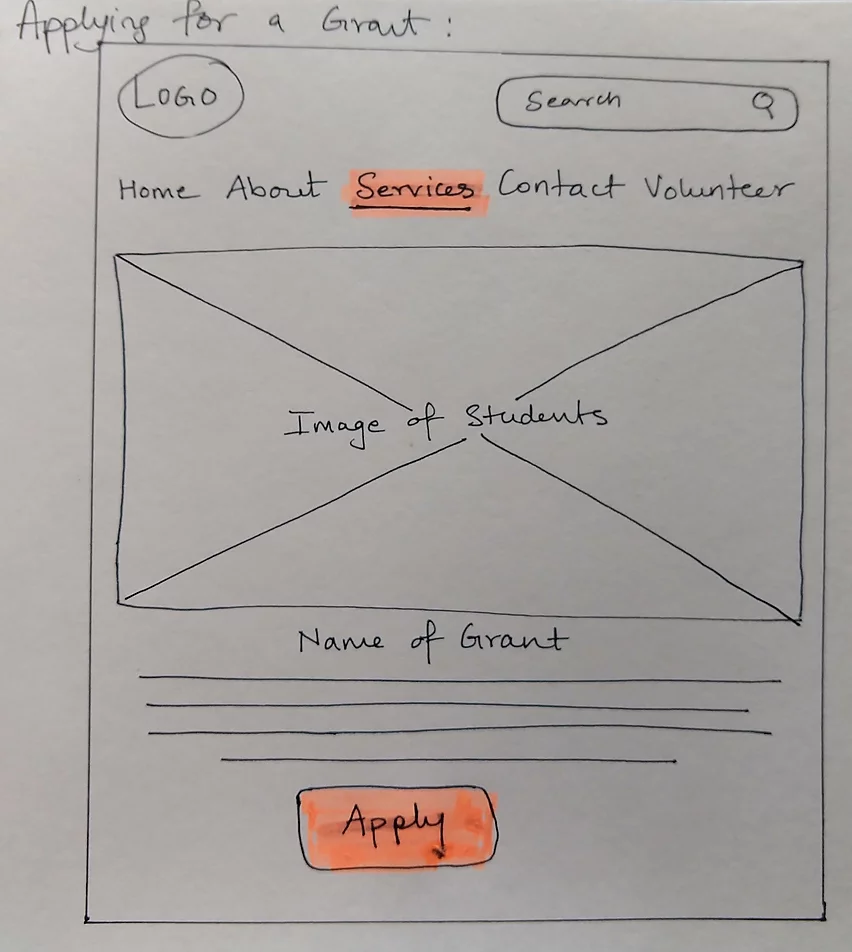 Applying for a Grant:
LOGO
Search
Home About Services Contact Volunteer
Image of Students
Name of Grant
Apply